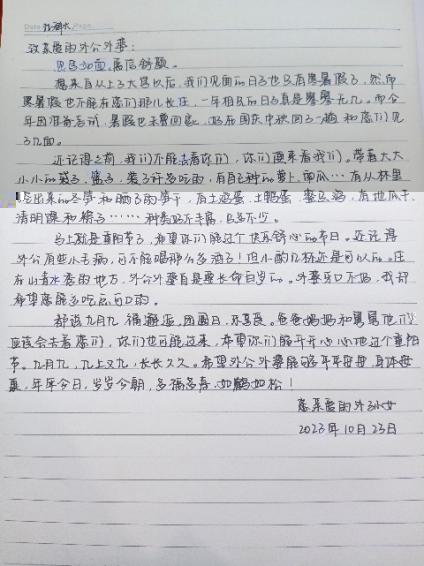 致亲爱的外公外婆:
见字如面,展信舒颜。
自从上了大学以后,我们见面的日子也只有寒暑假了,然而
寒暑假也不能在您们那儿长住,一年相见的日子真是寥寥无几。而今
年因准备考试,暑假也未曾回家,好在国庆中秋回了一趟和您们见
了几面。
还记得之前,我们不能去看你们,你们便来看我们。带着大大
小小的袋子,篮子,装了许多吃的,有自己种的萝卜、南瓜……有从林里
挖出来的冬笋和晒了的笋干,有土鸡蛋、土鸭蛋、有地瓜干、
清明粿和粽子……种类好不丰富,且多不少。
马上就是重阳节了,希望你们能过个快乐舒心的节日。还记得
外公有些小毛病,可不能喝那么多酒了!但小酌几杯还是可以的。住
在山青水秀的地方,外公外婆自是要长命百岁的。外婆牙口不好,我却
希望您能多吃些可口的。
都说九月九 福寿 团圆日,爸爸妈妈和舅舅他们
应该会去看您们,你们也可能过来,希望你们能开开心心地过个重阳
节。九月九,九上又九,长长久久。希望外公外婆能够平平安安,身体安
康,年年今日,岁岁今朝,多福多寿,如鹤如松!
您亲爱的外孙女
2023年10月23日